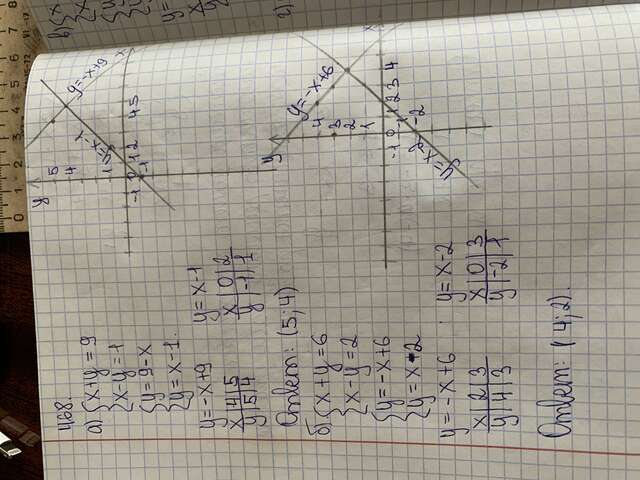 468
а) { x+y=9
{ x-y=1
{ y=9-x
{ y=x-1.
y=-x+9
x|4|5
y|5|4
y=x-1
x|0|2
y|-1|1
Ответ: (5;4)
б) { x+y=6
{ x-y=2
{ y=-x+6
{ y=x-2
y=-x+6
x|2|3
y|4|3
y=x-2
x|0|3
y|-2|1
Ответ: (4;2).
y
5
4
1
-1
1 2
4 5
x
y=-x+9
y
4
3
2
1
-1 0 1 2 3 4
-2
x
y=-x+6
y=x-2
в) { x
г)
0 1 2 3 4 5 6 7 8